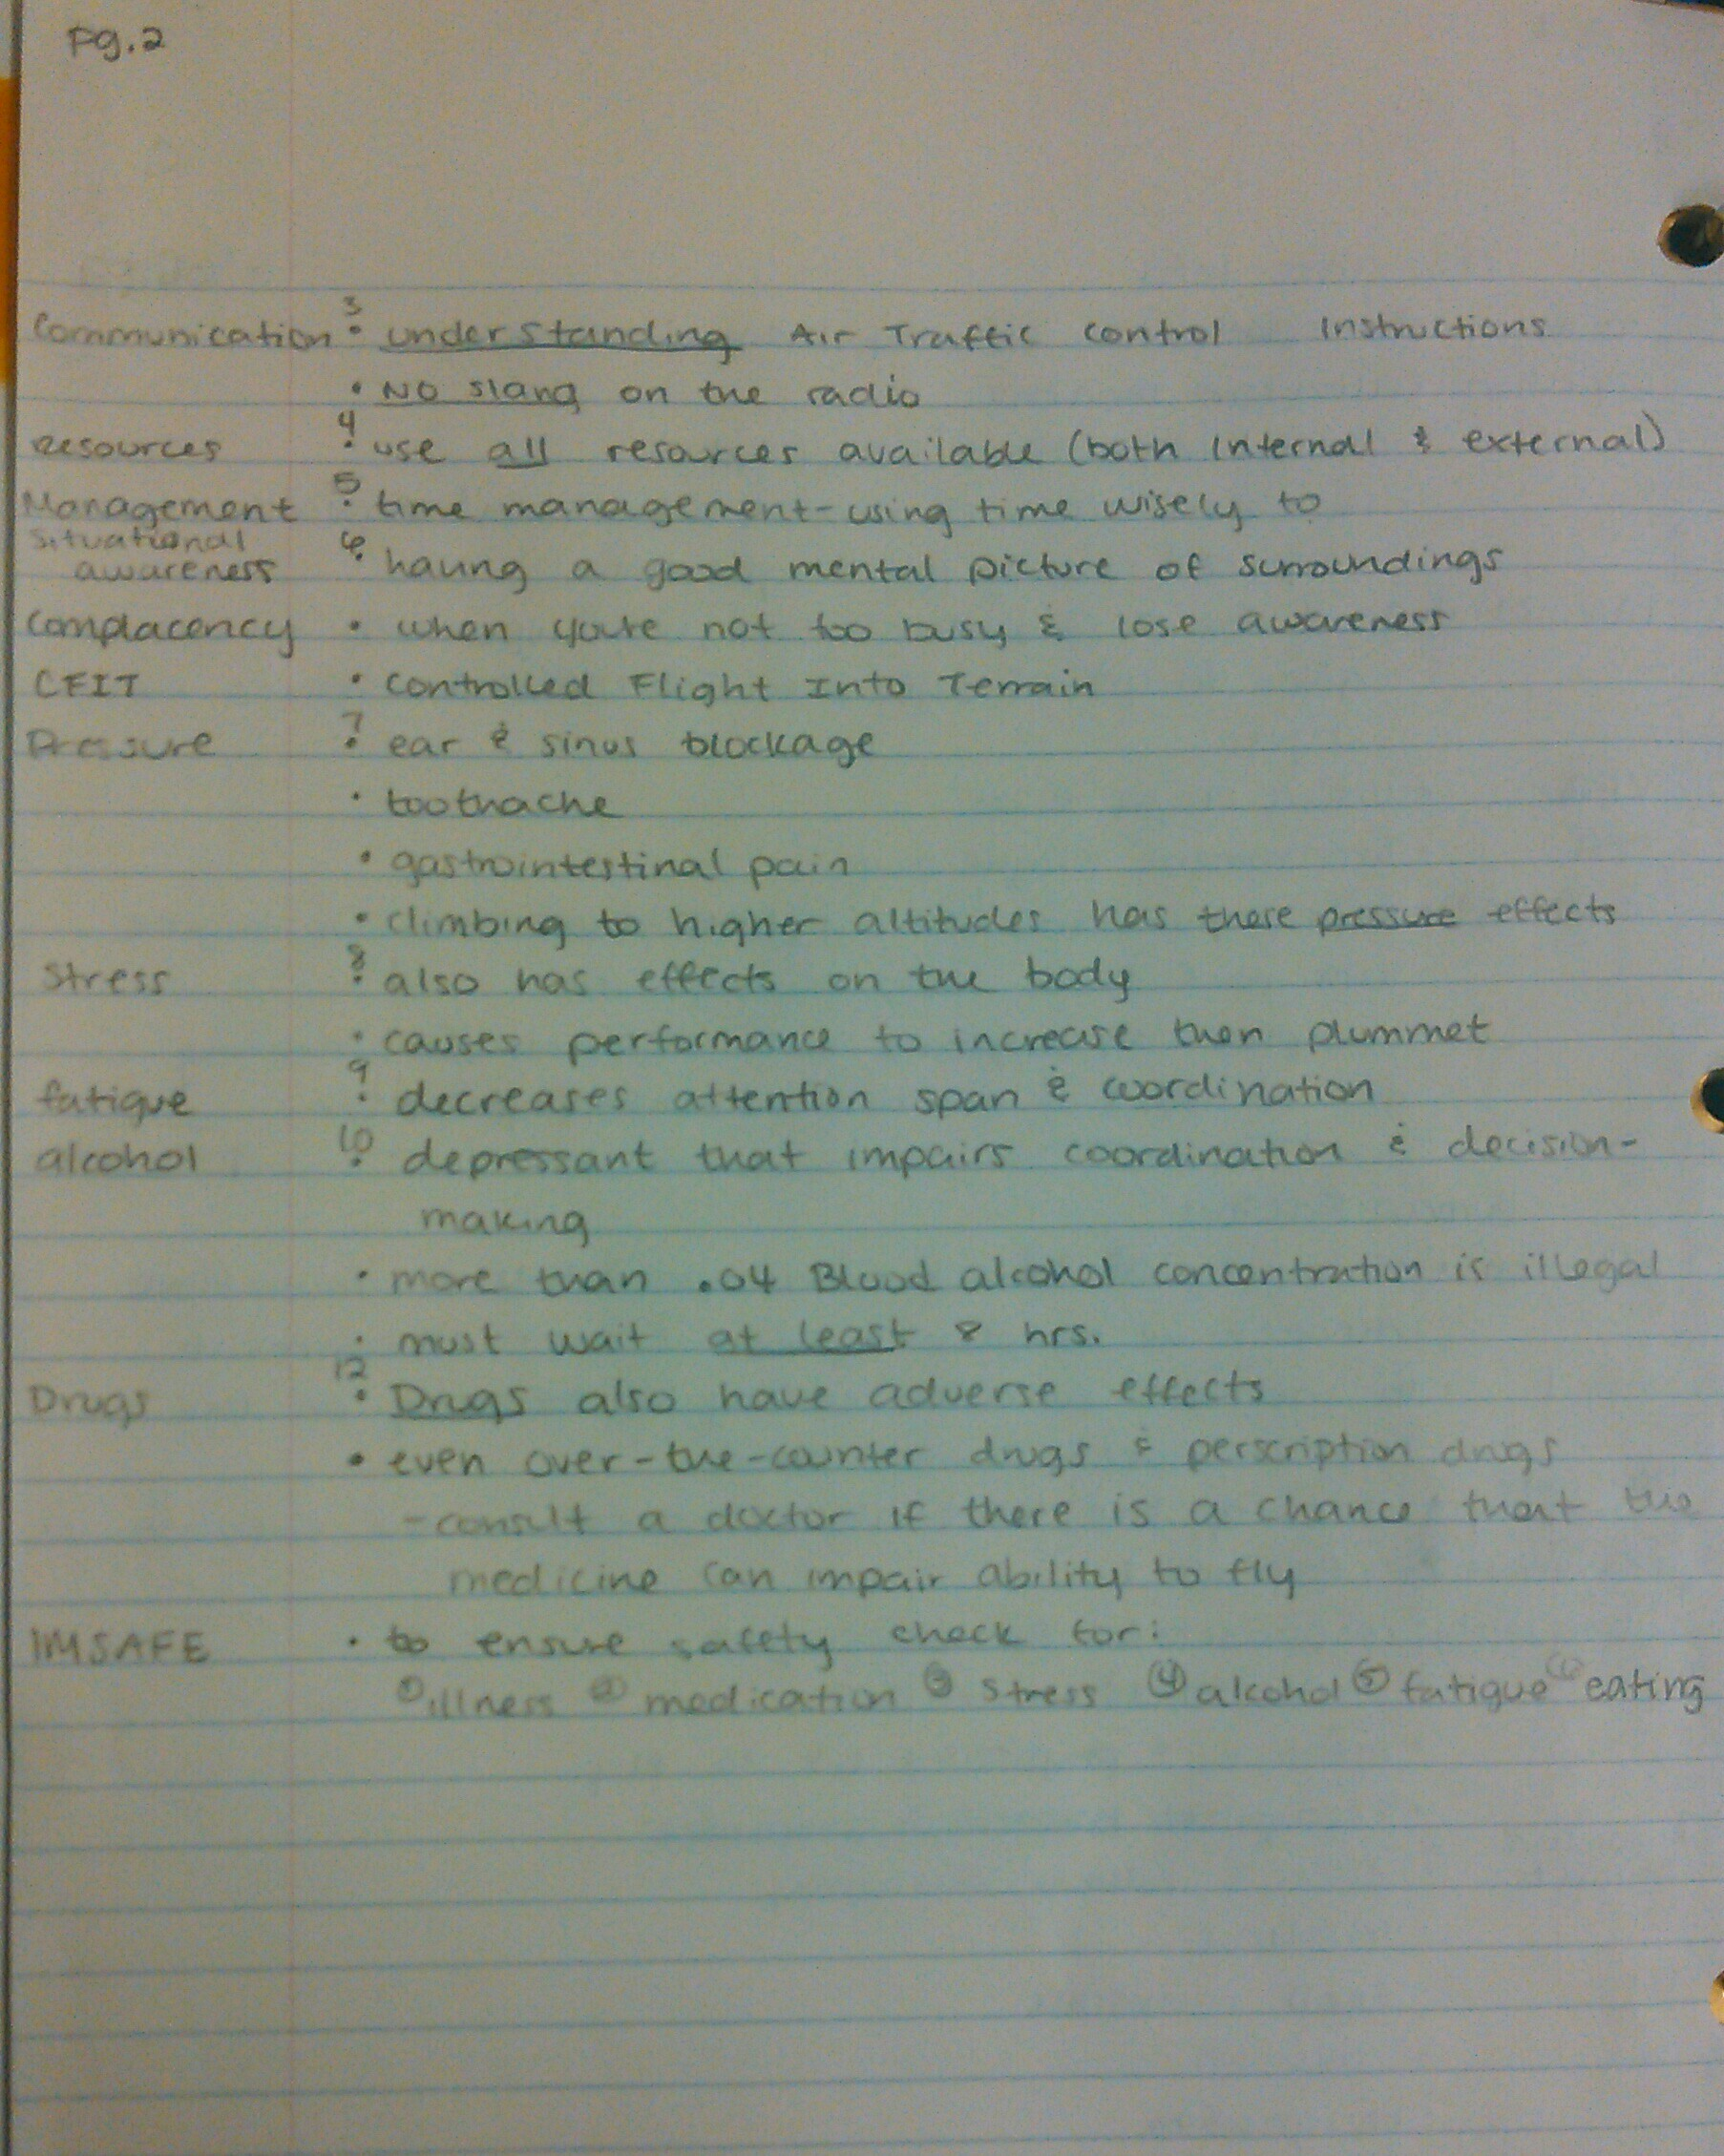 Pg.2
3
Communication • understanding Air Traffic Control Instructions
• NO slang on the radio
4
resources • use all resources available (both internal & external)
5
Management • time management - using time wisely to
Situational 6
awareness • having a good mental picture of surroundings
Complacency • when you're not too busy & lose awareness
CFIT • Controlled Flight Into Terrain
7
Pressure • ear & sinus blockage
• toothache
• gastrointestinal pain
• climbing to higher altitudes has these pressure effects
8
Stress • also has effects on the body
• causes performance to increase then plummet
9
fatigue • decreases attention span & coordination
10
alcohol • depressant that impairs coordination & decision-
making
• more than .04 Blood alcohol concentration is illegal
• must wait at least 8 hrs.
12
Drugs • Drugs also have adverse effects
• even over-the-counter drugs & perscription drugs
- consult a doctor if there is a chance that the
medicine can impair ability to fly
IMSAFE • to ensure safety check for:
① illness ② medication ③ stress ④ alcohol ⑤ fatigue ⑥ eating